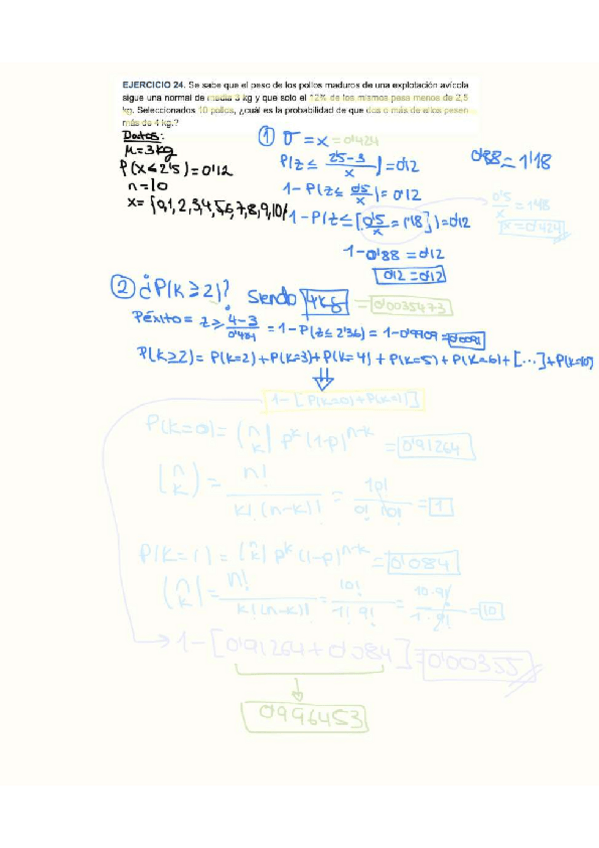 EJERCICIO 24. Se sabe que el peso de los pollos maduros de una explotación avícola
sigue una normal de media 3 kg y que solo el 12% de los mismos pesa menos de 2,5
kg. Seleccionados 10 pollos, ¿cuál es la probabilidad de que dos o más de ellos pesen
más de 4 kg.?
Datos:
μ=3kg
P(x≤2'5)=0'12
n=10
x={0,1,2,3,4,5,6,7,8,9,10}
① σ=x=0'424
P(z≤ (2'5-3)/x)=0'12
1-P(z≤ 0'5/x)=0'12
1-P(z≤[0'5/x=1'18])=0'12
1-0'88=0'12
0'12=0'12
0'88=1'18
0'5/x=1'18
x=0'424
② ¿P(K≥2)? Siendo 4kg = 0'0035473
Péxito= z≥ (4-3)/0'424 = 1-P(z≤2'36)=1-0'9909=0'0091
P(K≥2)= P(K=2)+P(K=3)+P(K=4)+P(K=5)+P(K=6)+[...]+P(K=10)
1-[P(K=0)+P(K=1)]
P(K=0)=(n k) p^k (1-p)^n-k = 0'91264
(n k)= n!/k!(n-k)! = 10!/0!10! = 1
P(K=1)=(n k) p^k (1-p)^n-k = 0'084
(n k)= n!/k!(n-k)! = 10!/1!9! = 10·9!/1·9! = 10
1-[0'91264+0'084]=0'00355
0'996453